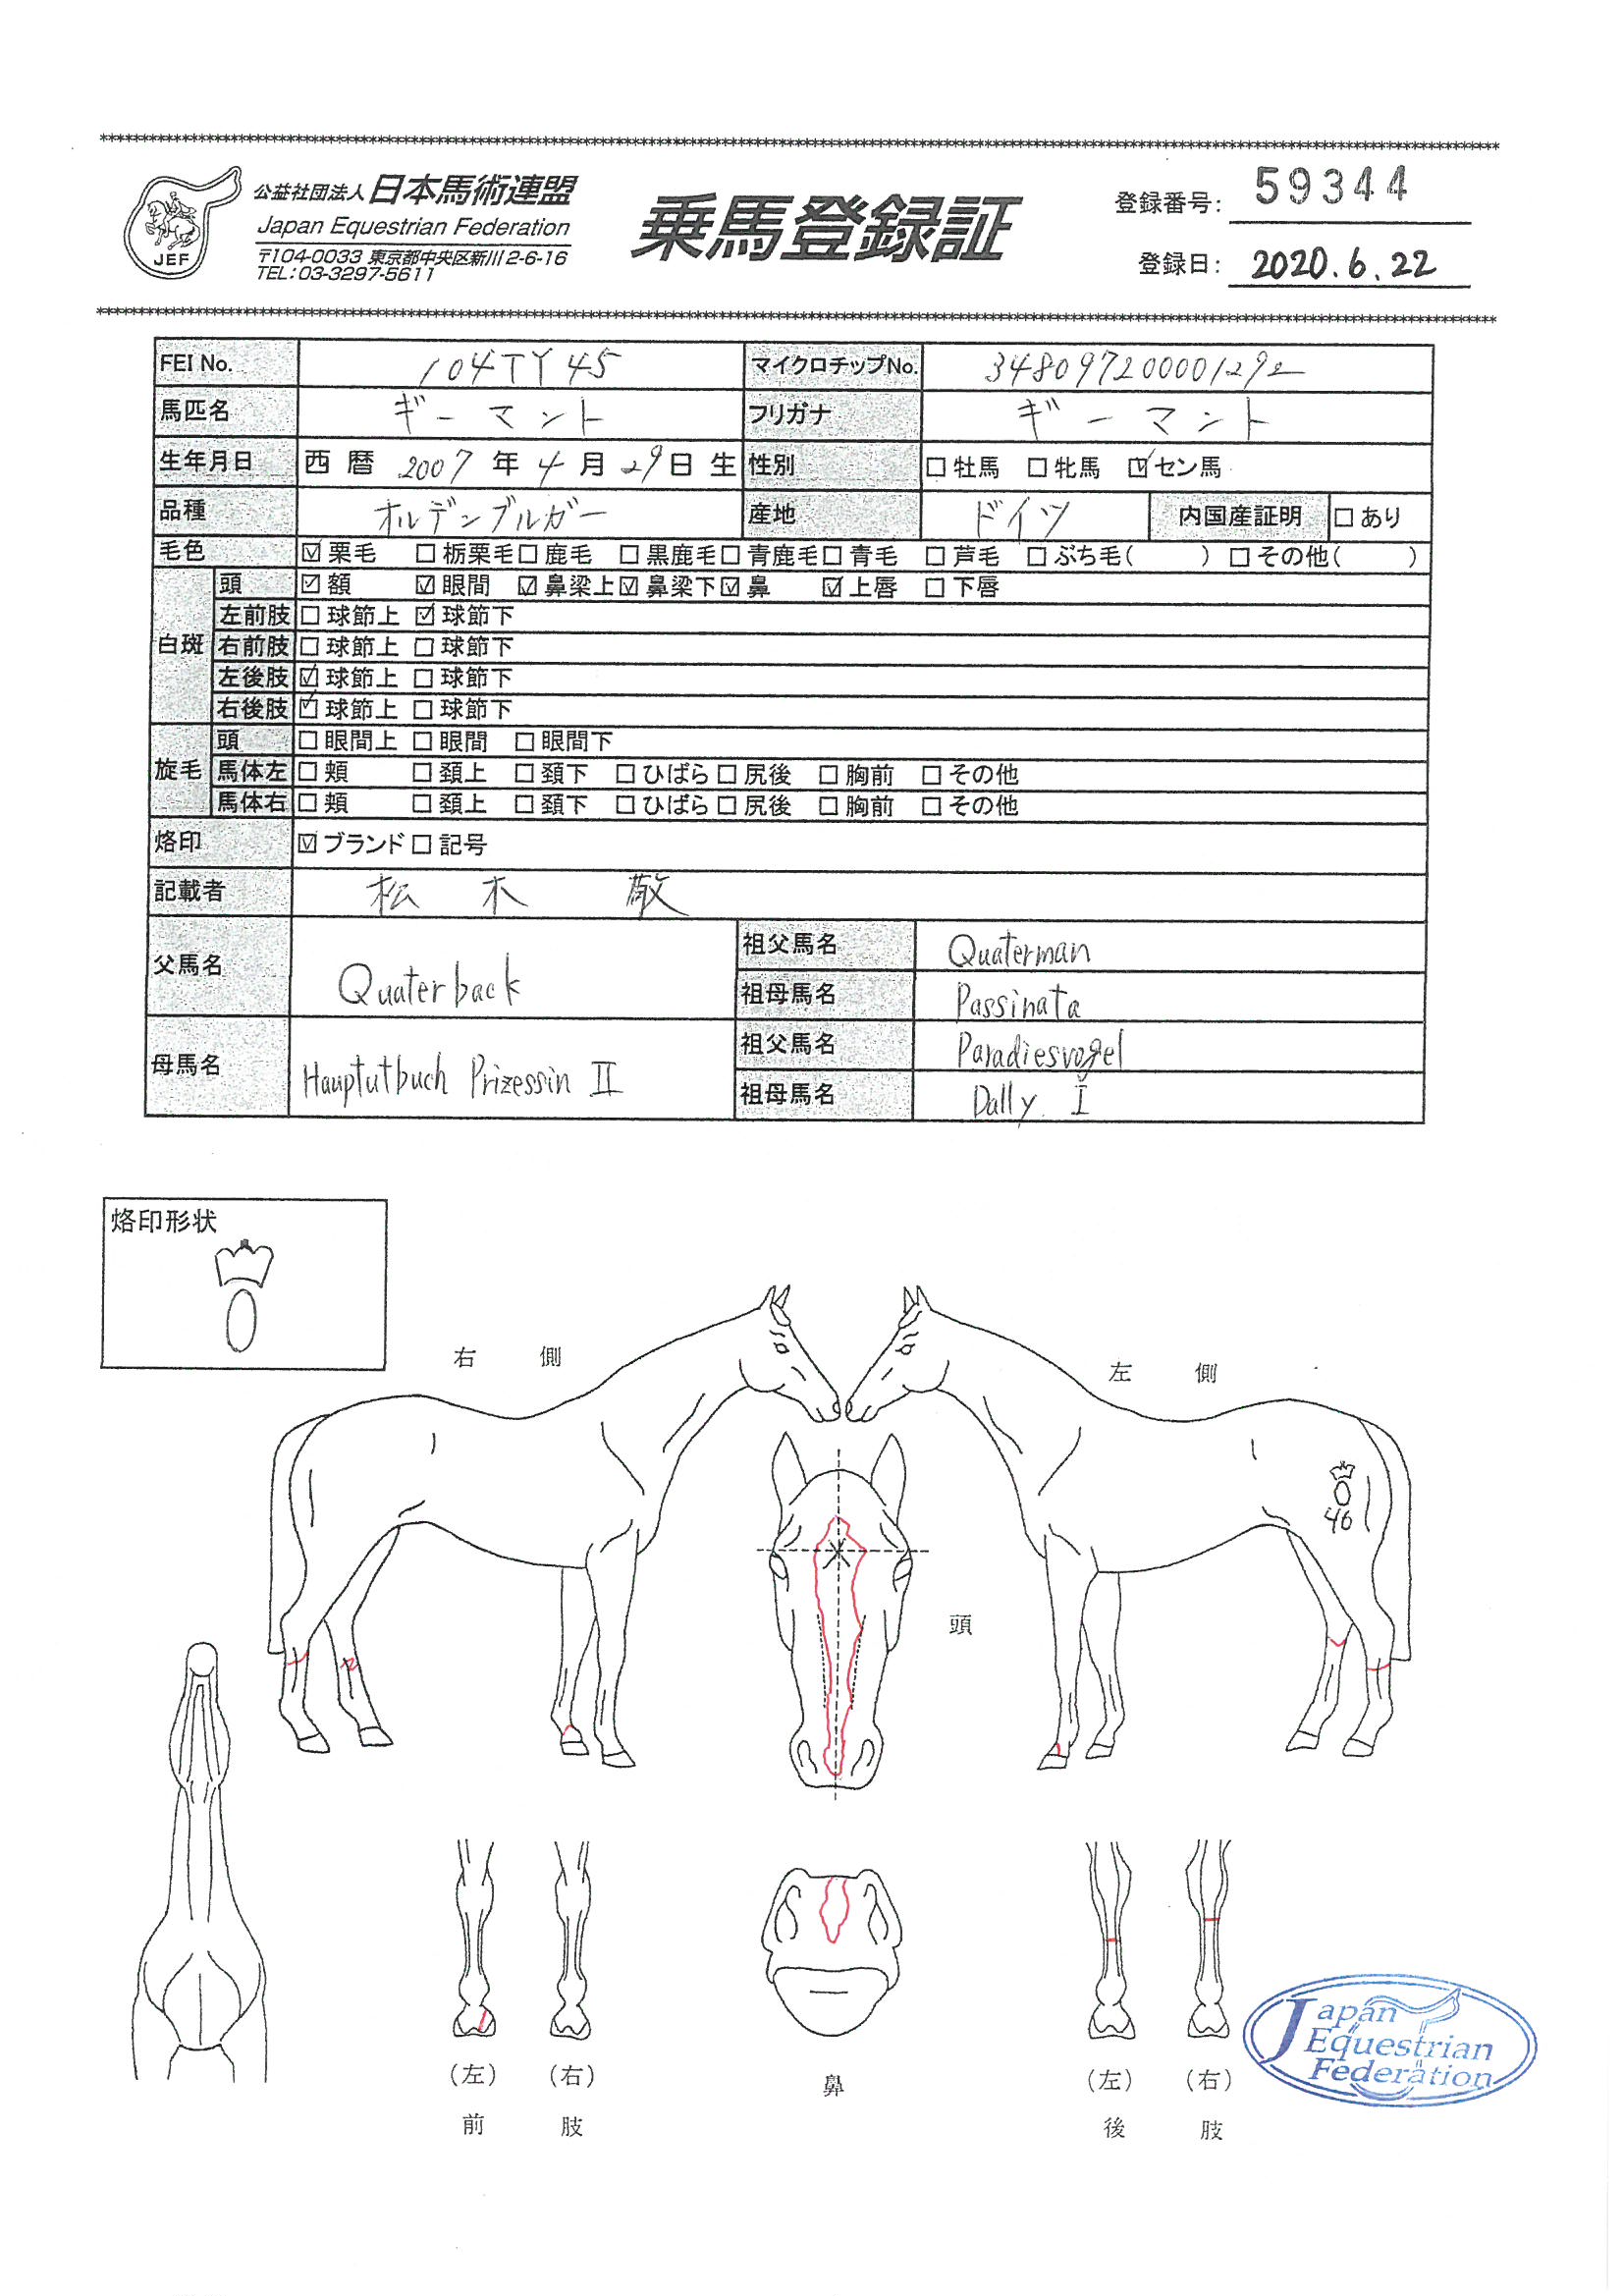 公益社団法人 日本馬術連盟
Japan Equestrian Federation
〒104-0033 東京都中央区新川2-6-16
TEL:03-3297-5611
JEF
乗馬登録証
登録番号: 59344
登録日: 2020.6.22
FEI No. 104TY45 マイクロチップNo. 348097200001292
馬匹名 ギーマント フリガナ ギーマント
生年月日 西暦 2007 年 4 月 29 日 生 性別 □牡馬 □牝馬 ☑セン馬
品種 オルデンブルガー 産地 ドイツ 内国産証明 □あり
毛色 ☑栗毛 □栃栗毛 □鹿毛 □黒鹿毛 □青鹿毛 □青毛 □芦毛 □ぶち毛( ) □その他( )
白斑 頭 ☑額 ☑眼間 ☑鼻梁上 ☑鼻梁下 ☑鼻 ☑上唇 □下唇
左前肢 □球節上 ☑球節下
右前肢 □球節上 □球節下
左後肢 ☑球節上 □球節下
右後肢 ☑球節上 □球節下
旋毛 頭 □眼間上 □眼間 □眼間下
馬体左 □頬 □頚上 □頚下 □ひばら □尻後 □胸前 □その他
馬体右 □頬 □頚上 □頚下 □ひばら □尻後 □胸前 □その他
烙印 ☑ブランド □記号
記載者 松木 敬
父馬名 Quaterback 祖父馬名 Quaterman
祖母馬名 Passinata
母馬名 Hauptutbuch Prizessin II 祖父馬名 Paradiesvogel
祖母馬名 Dally I
烙印形状
右側
左側
46
頭
(左) (右)
前肢
鼻
(左) (右)
後肢
Japan
Equestrian
Federation